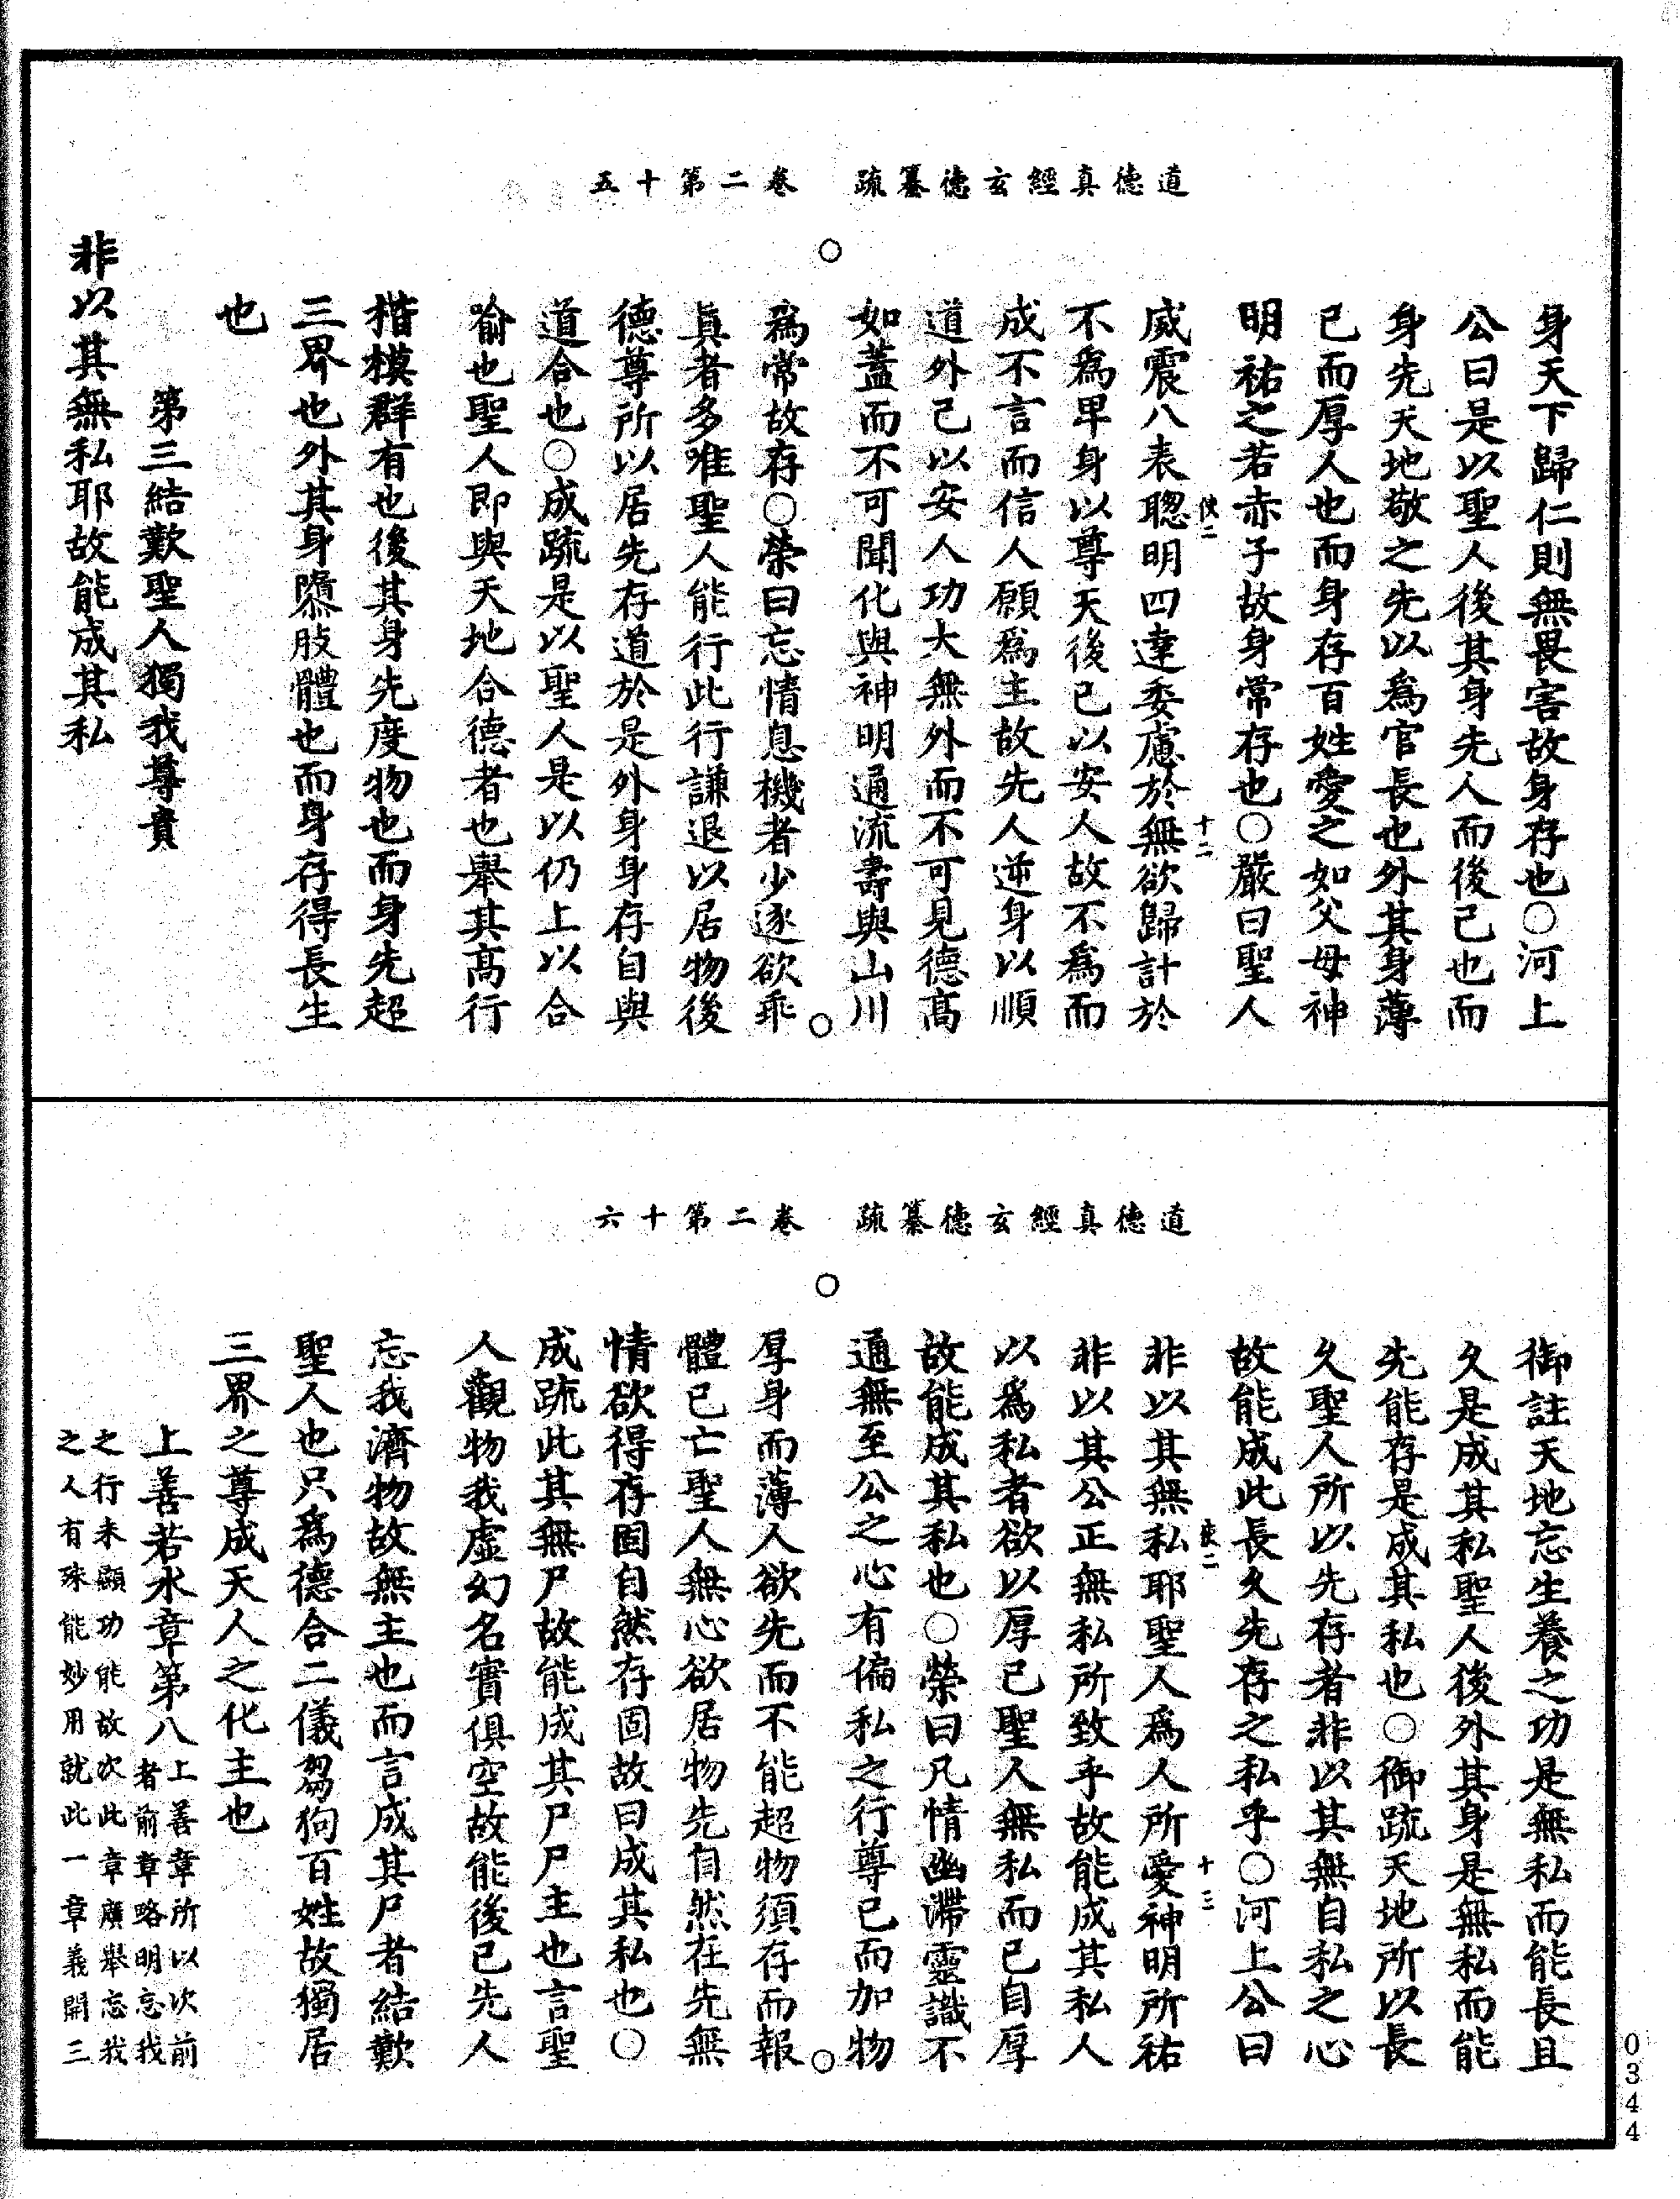 道德真經玄德纂疏　卷二第十五
身天下歸仁則無畏害故身存也○河上
公曰是以聖人後其身先人而後己也而
身先天地敬之先以爲官長也外其身薄
己而厚人也而身存百姓愛之如父母神
明祐之若赤子故身常存也○嚴曰聖人
使二
十二
威震八表聰明四達委慮於無欲歸計於
不爲卑身以尊天後己以安人故不爲而
成不言而信人願爲主故先人逆身以順
道外己以安人功大無外而不可見德高
如蓋而不可聞化與神明通流壽與山川
爲常故存○榮曰忘情息機者少逐欲乖
真者多唯聖人能行此行謙退以居物後
德尊所以居先存道於是外身身存自與
道合也○成疏是以聖人是以仍上以合
喻也聖人即與天地合德者也舉其高行
楷模群有也後其身先度物也而身先超
三界也外其身隳肢體也而身存得長生
也
第三結歎聖人獨我尊貴
非以其無私耶故能成其私
道德真經玄德纂疏　卷二第十六
御註天地忘生養之功是無私而能長且
久是成其私聖人後外其身是無私而能
先能存是成其私也○御疏天地所以長
久聖人所以先存者非以其無自私之心
故能成此長久先存之私乎○河上公曰
使二
十三
非以其無私耶聖人爲人所愛神明所祐
非以其公正無私所致乎故能成其私人
以爲私者欲以厚己聖人無私而已自厚
故能成其私也○榮曰凡情幽滯靈識不
通無至公之心有偏私之行尊己而加物
厚身而薄人欲先而不能超物須存而報
體已亡聖人無心欲居物先自然在先無
情欲得存固自然存固故曰成其私也○
成疏此其無尸故能成其尸尸主也言聖
人觀物我虛幻名實俱空故能後己先人
忘我濟物故無主也而言成其尸者結歎
聖人也只爲德合二儀芻狗百姓故獨居
三界之尊成天人之化主也
上善若水章第八
上善章所以次前
者前章略明忘我
之行未顯功能故次此章廣舉忘我
之人有殊能妙用就此一章義開三
0344